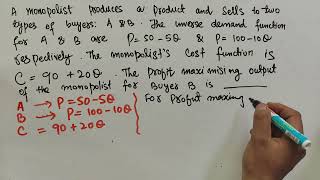 A monopolist produces a product and sells to two
types of buyers: A & B. The inverse demand function
for A & B are P=50-5Q & P=100-10Q
respectively. The monopolist's cost function is
C = 90 + 20Q. The Profit maximising output
of the monopolist for Buyer B is ______
A → P=50-5Q
B → P=100-10Q
C = 90+20Q
For Profit maximing